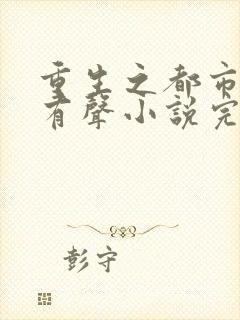 重生之都市
有聲小說完
彭守